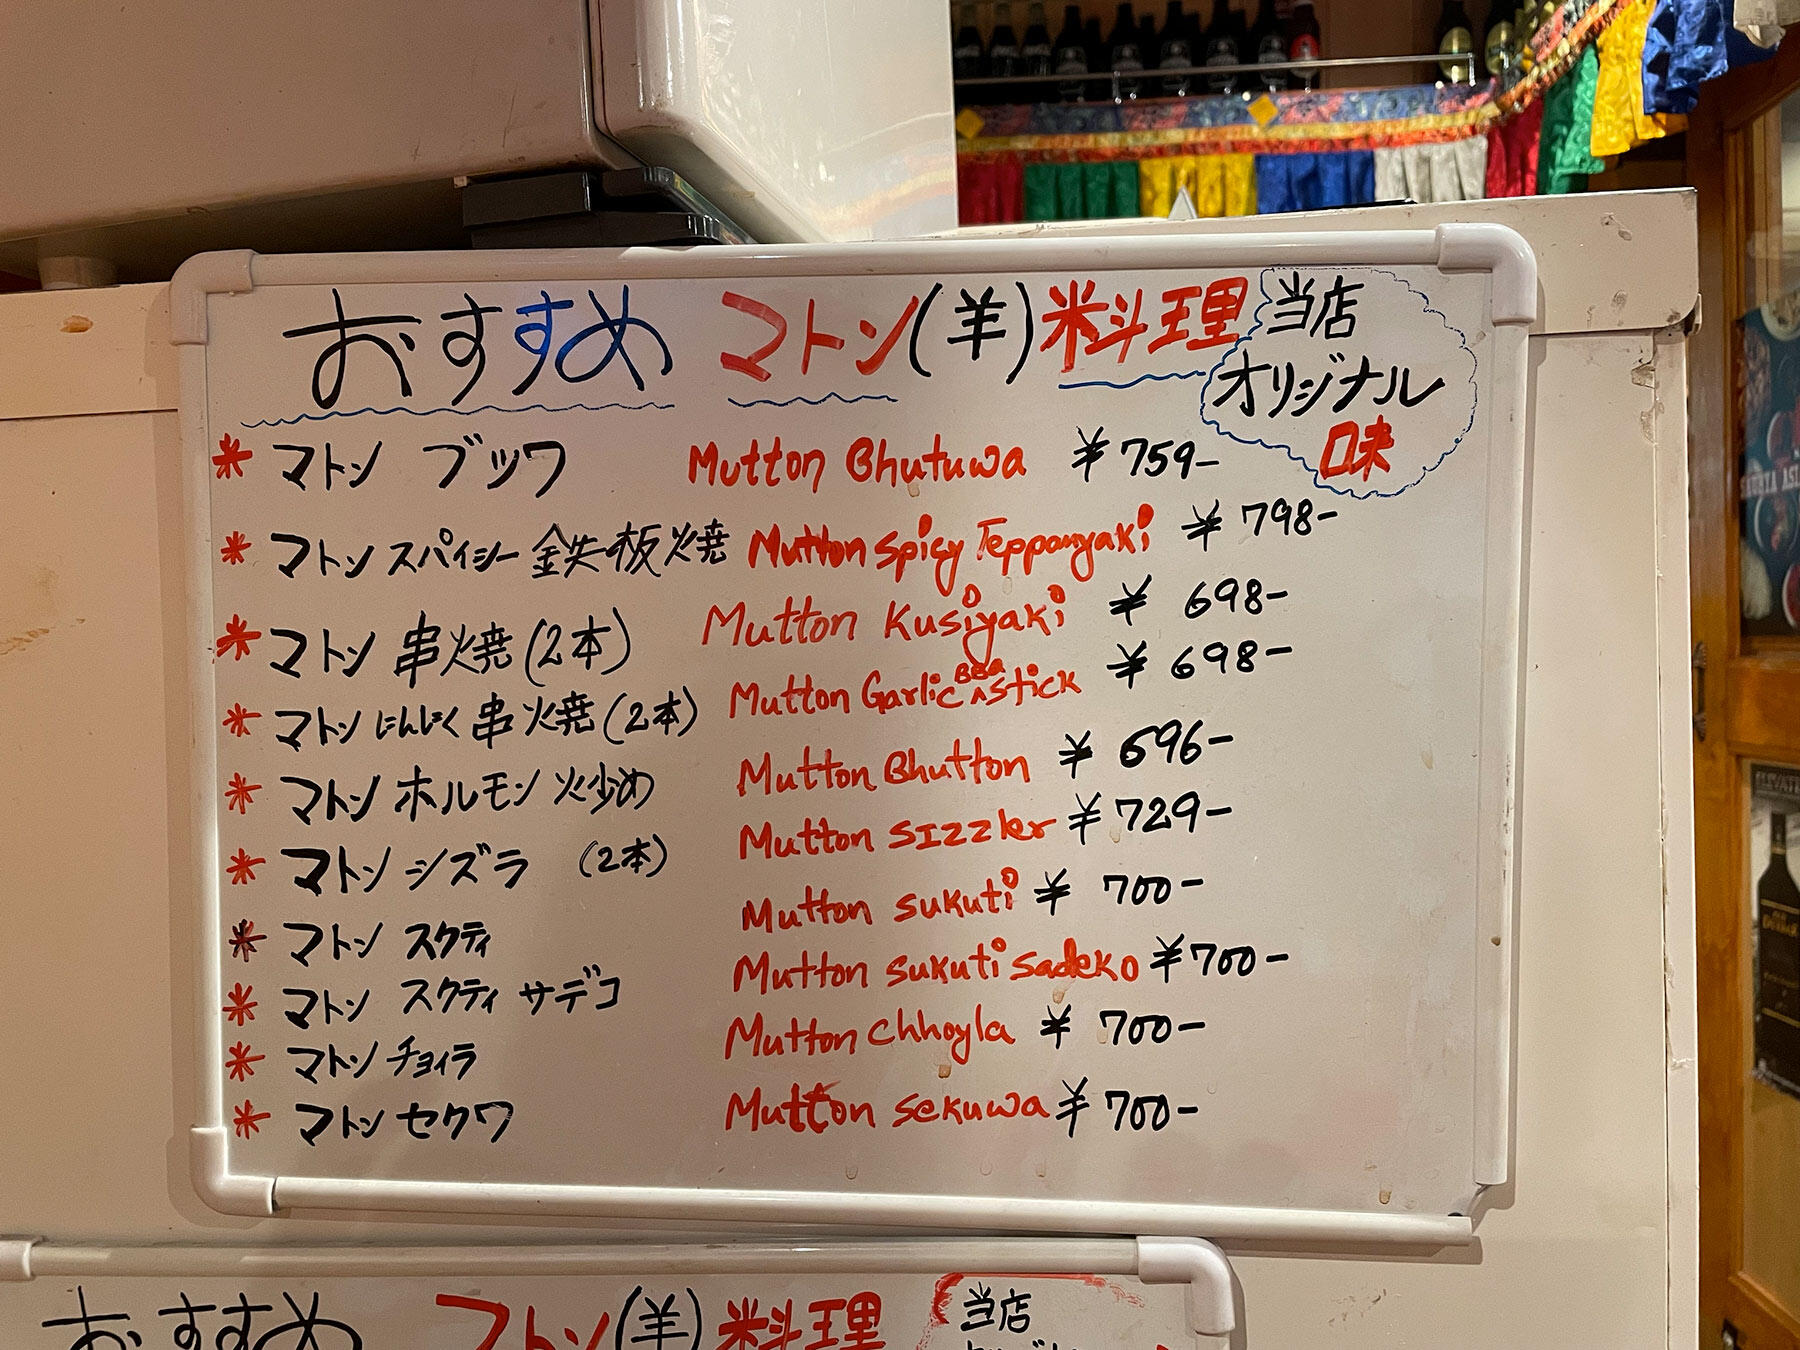 おすすめ マトン(羊)料理 当店
オリジナル
口味
* マトン ブッワ Mutton Bhutuwa ¥759-
* マトン スパイシー 鉄板焼 Mutton Spicy Teppanyaki ¥798-
* マトン 串焼(2本) Mutton Kusiyaki ¥698-
* マトン にんにく 串焼(2本) Mutton Garlic BBQ stick ¥698-
* マトン ホルモン 火炒め Mutton Bhutton ¥696-
* マトン シズラ (2本) Mutton SIZZler ¥729-
* マトン スクティ Mutton sukuti ¥700-
* マトン スクティ サデコ Mutton sukuti sadeko ¥700-
* マトン チョイラ Mutton chhoyla ¥700-
* マトン セクワ Mutton sekuwa ¥700-
おすすめ マトン(羊)料理 当店